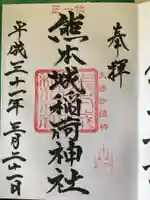 奉拝
熊本城稲荷神社
平成三十一年三月二十一日